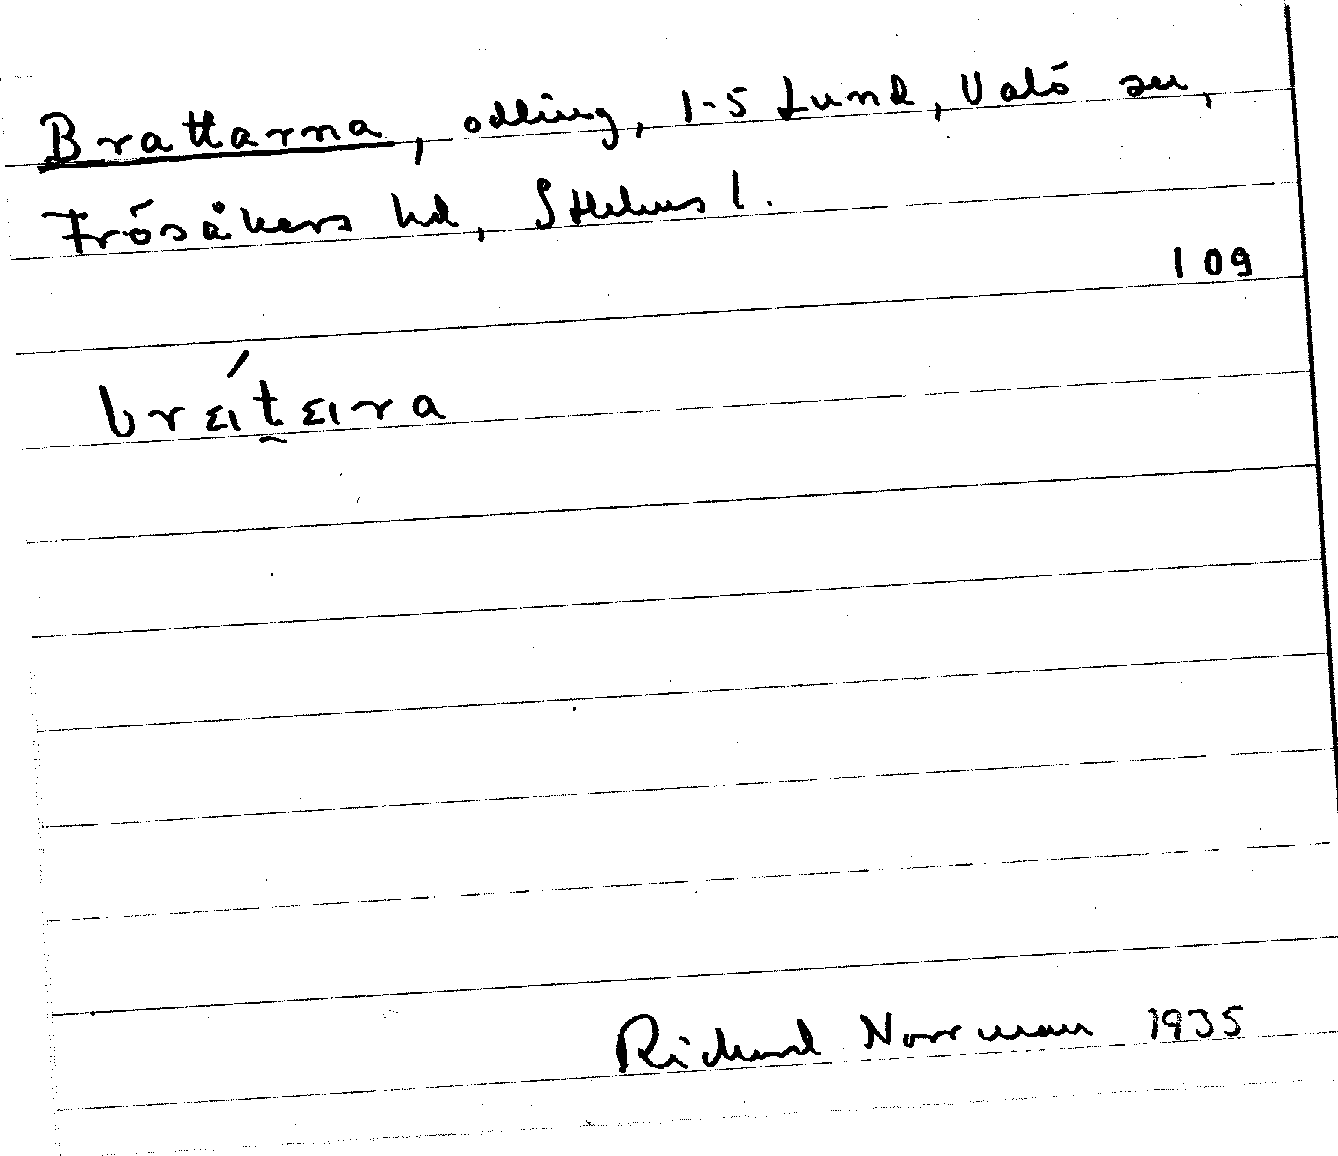 Brattarna, odling, 1-5 Lund, Valö sn,
Frösåkers hd, Sthlms l.
109
brɛıt̰ɛıra
Richard Norrman 1935